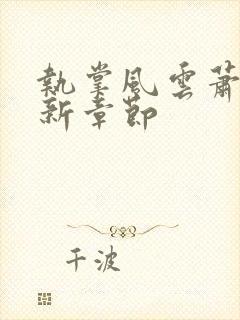 執掌風雲蕭
新章節
千波